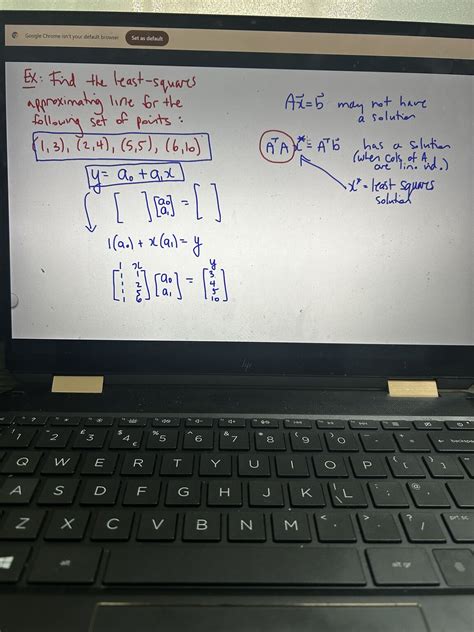 Google Chrome isn't your default browser
Set as default
Ex: Find the least-squares
approximating line for the
following set of points:
(1,3), (2,4), (5,5), (6,10)
y = a₀ + a₁x
[ ] [a₀ a₁] = [ ]
1(a₀) + x(a₁) = y
1 x y
[1 1
1 2
1 5
1 6] [a₀
a₁] = [3
4
5
10]
Ax⃗ = b⃗ may not have
a solution
AᵀA x⃗* = Aᵀb⃗ has a solution
(when cols of A
are lin. ind.)
x* = least squares
solution
hp
1 2 £ 3 $ 4 € % 5 ^ 6 & 7 * 8 ( 9 ) 0 _ - + = backspace
Q W E R T Y U I O P { [ } ]
A S D F G H J K L : ; @ '
Z X C V B N M < , > . ? / prt sc
alt alt gr